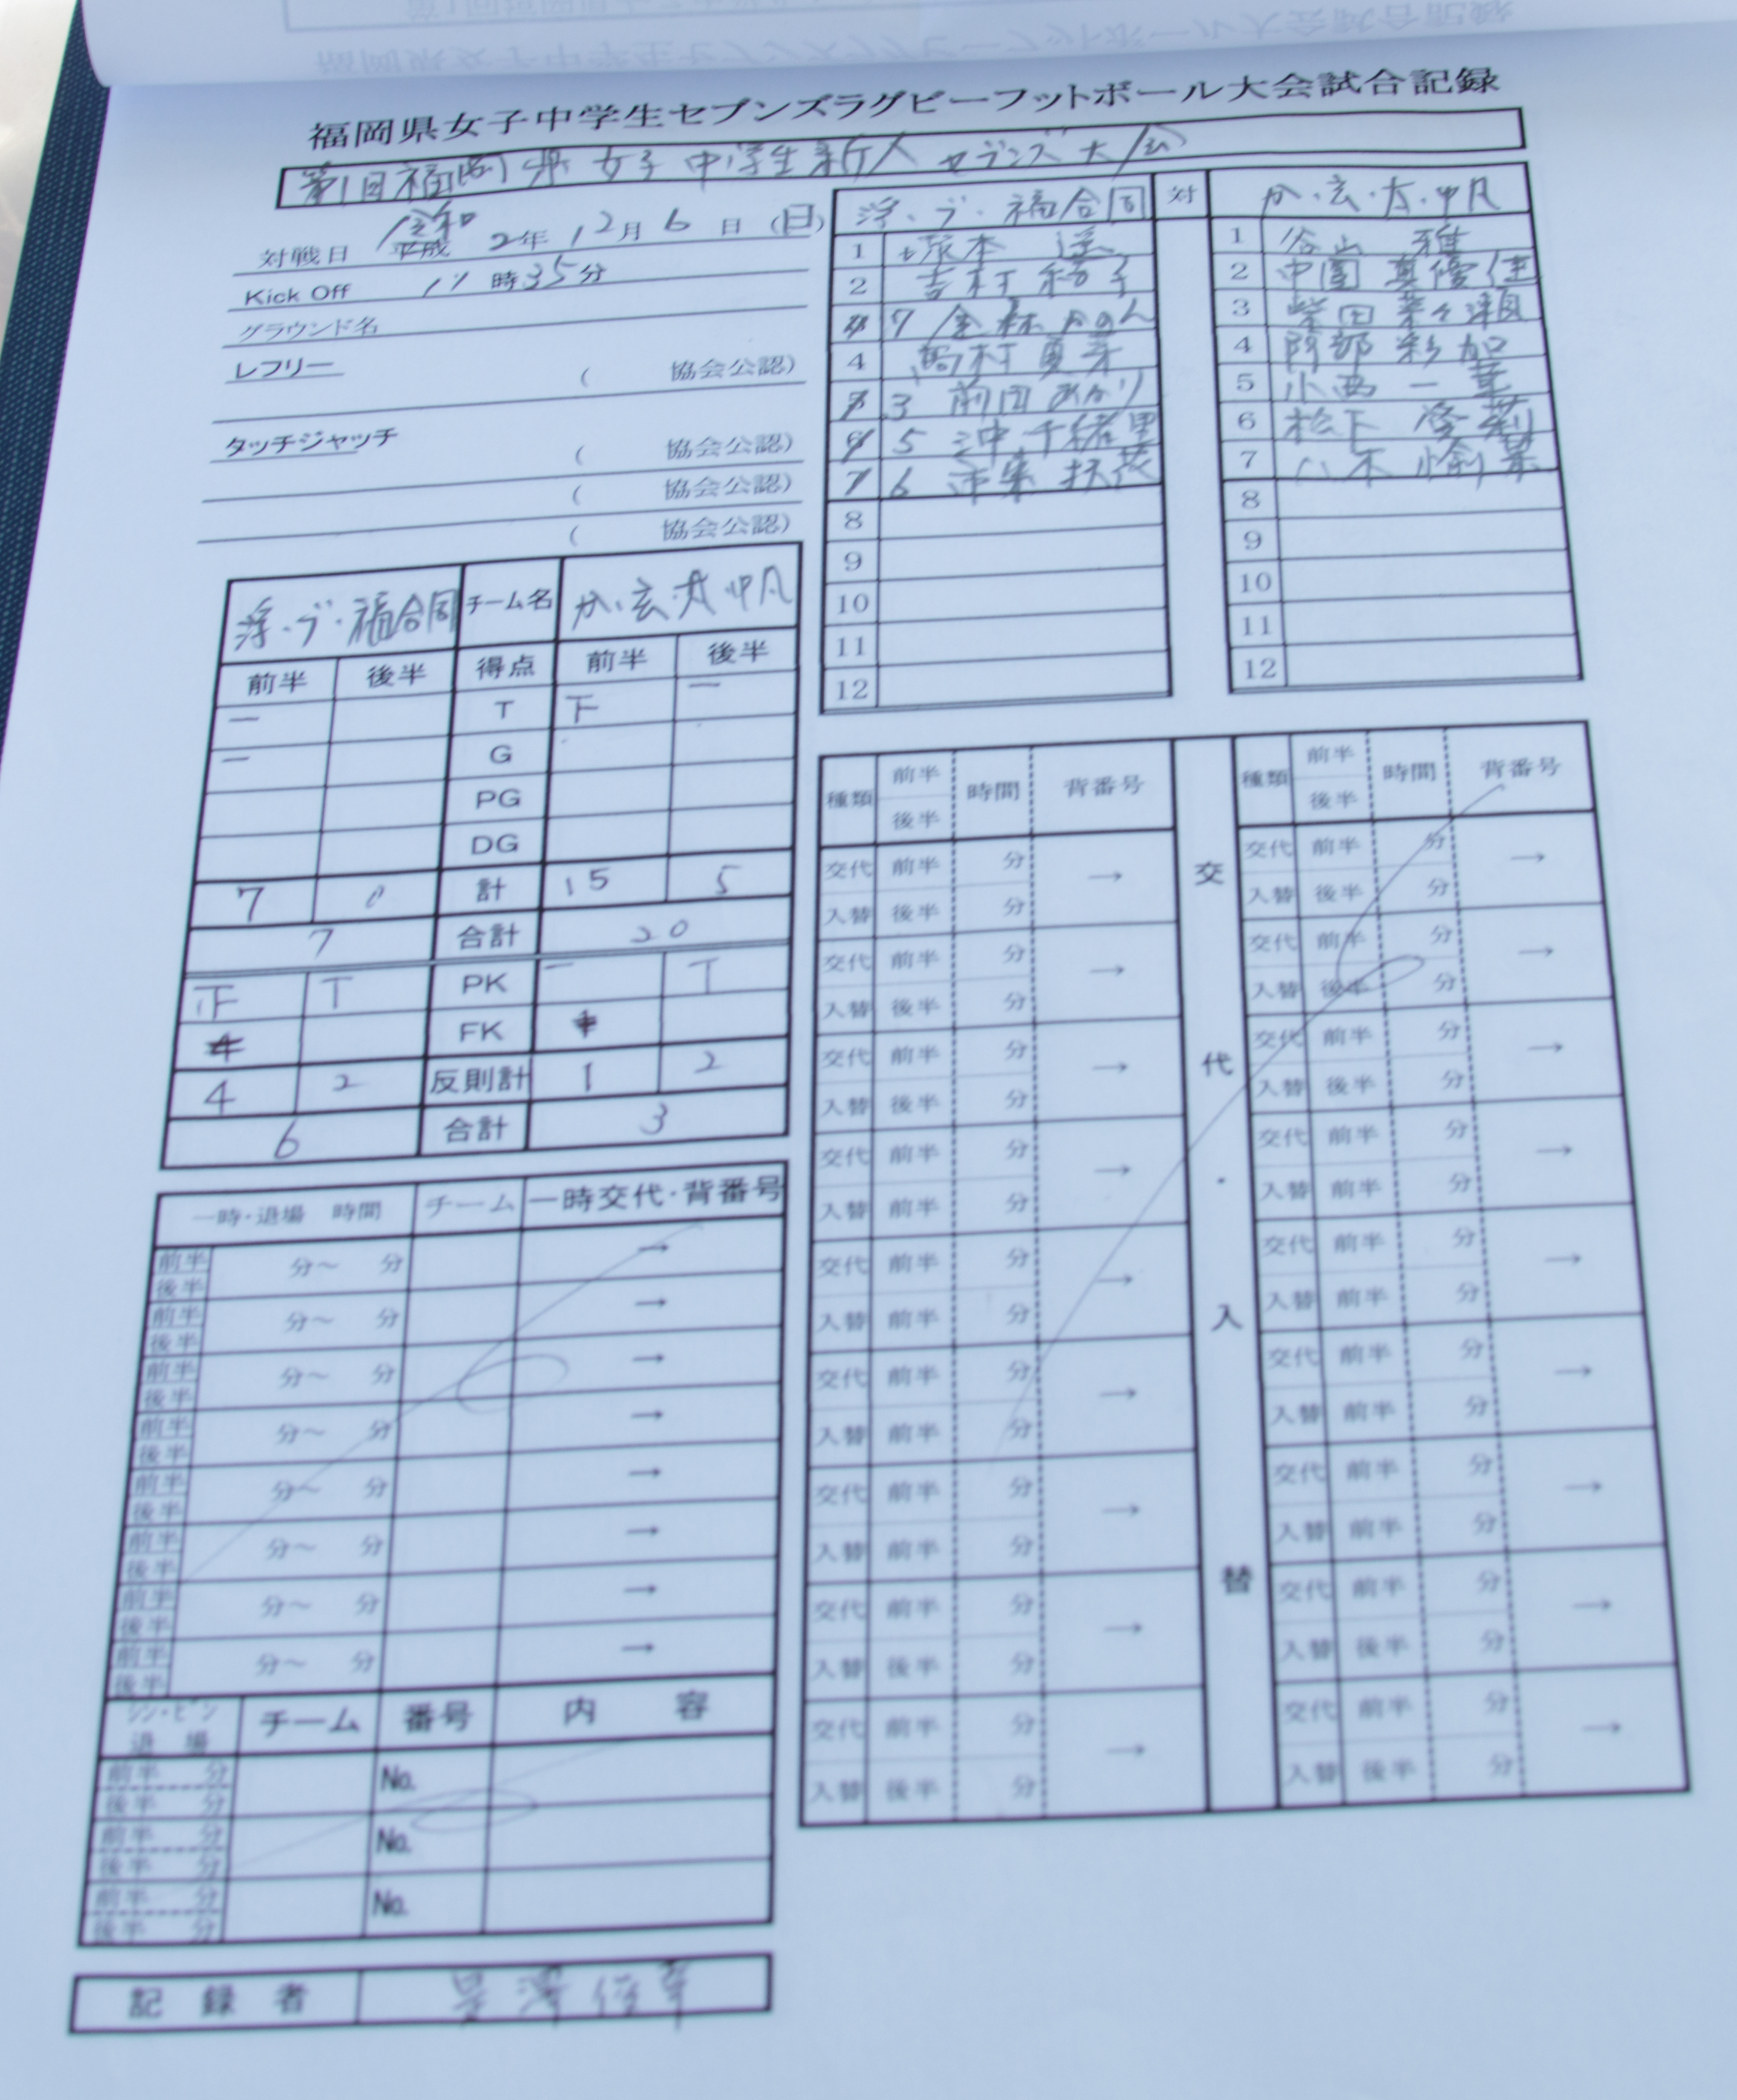 福岡県女子中学生セブンズラグビーフットボール大会試合記録
第1回福岡県女子中学生新人セブンズ大会
対戦日 令和 平成 2年 12月 6日 (日)
Kick Off 11時35分
グラウンド名
レフリー
( 協会公認)
タッチジャッチ
( 協会公認)
( 協会公認)
( 協会公認)
浮・ブ・福合同 対 か・玄・太・帆
1 塚本 遥
2 吉村
7 金森 かのん
4 高村 夏芽
3 前田 あかり
5 沖 千緒里
6 扶茂
8
9
10
11
12
1 谷山 雅
2 中園 真優佳
3 柴田 菜々瀬
4 阿部 彩加
5 小西 一葉
6 松下 愛莉
7 八木 愉果
8
9
10
11
12
浮・ブ・福合同 チーム名 か・玄・太・帆
前半 後半 得点 前半 後半
一 T 下 一
一 G
PG
DG
7 0 計 15 5
7 合計 20
下 T PK 一 T
FK
4 2 反則計 1 2
6 合計 3
一時・退場 時間 チーム 一時交代・背番号
前半 分～ 分 →
後半
前半 分～ 分 →
後半
前半 分～ 分 →
後半
前半 分～ 分 →
後半
前半 分～ 分 →
後半
前半 分～ 分 →
後半
前半 分～ 分 →
後半
前半 分～ 分 →
後半
シン・ビン
退場 チーム 番号 内容
前半 分 No.
後半 分
前半 分 No.
後半 分
前半 分 No.
後半 分
記録者
種類 前半 後半 時間 背番号
交代 前半 分 →
入替 後半 分
交代 前半 分 →
入替 後半 分
交代 前半 分 →
入替 後半 分
交代 前半 分 →
入替 前半 分
交代 前半 分 →
入替 前半 分
交代 前半 分 →
入替 前半 分
交代 前半 分 →
入替 前半 分
交代 前半 分 →
入替 後半 分
交代 前半 分 →
入替 後半 分
交代・入替
種類 前半 後半 時間 背番号
交代 前半 分 →
入替 後半 分
交代 前半 分 →
入替 後半 分
交代 前半 分 →
入替 後半 分
交代 前半 分 →
入替 前半 分
交代 前半 分 →
入替 前半 分
交代 前半 分 →
入替 前半 分
交代 前半 分 →
入替 前半 分
交代 前半 分 →
入替 後半 分
交代 前半 分 →
入替 後半 分